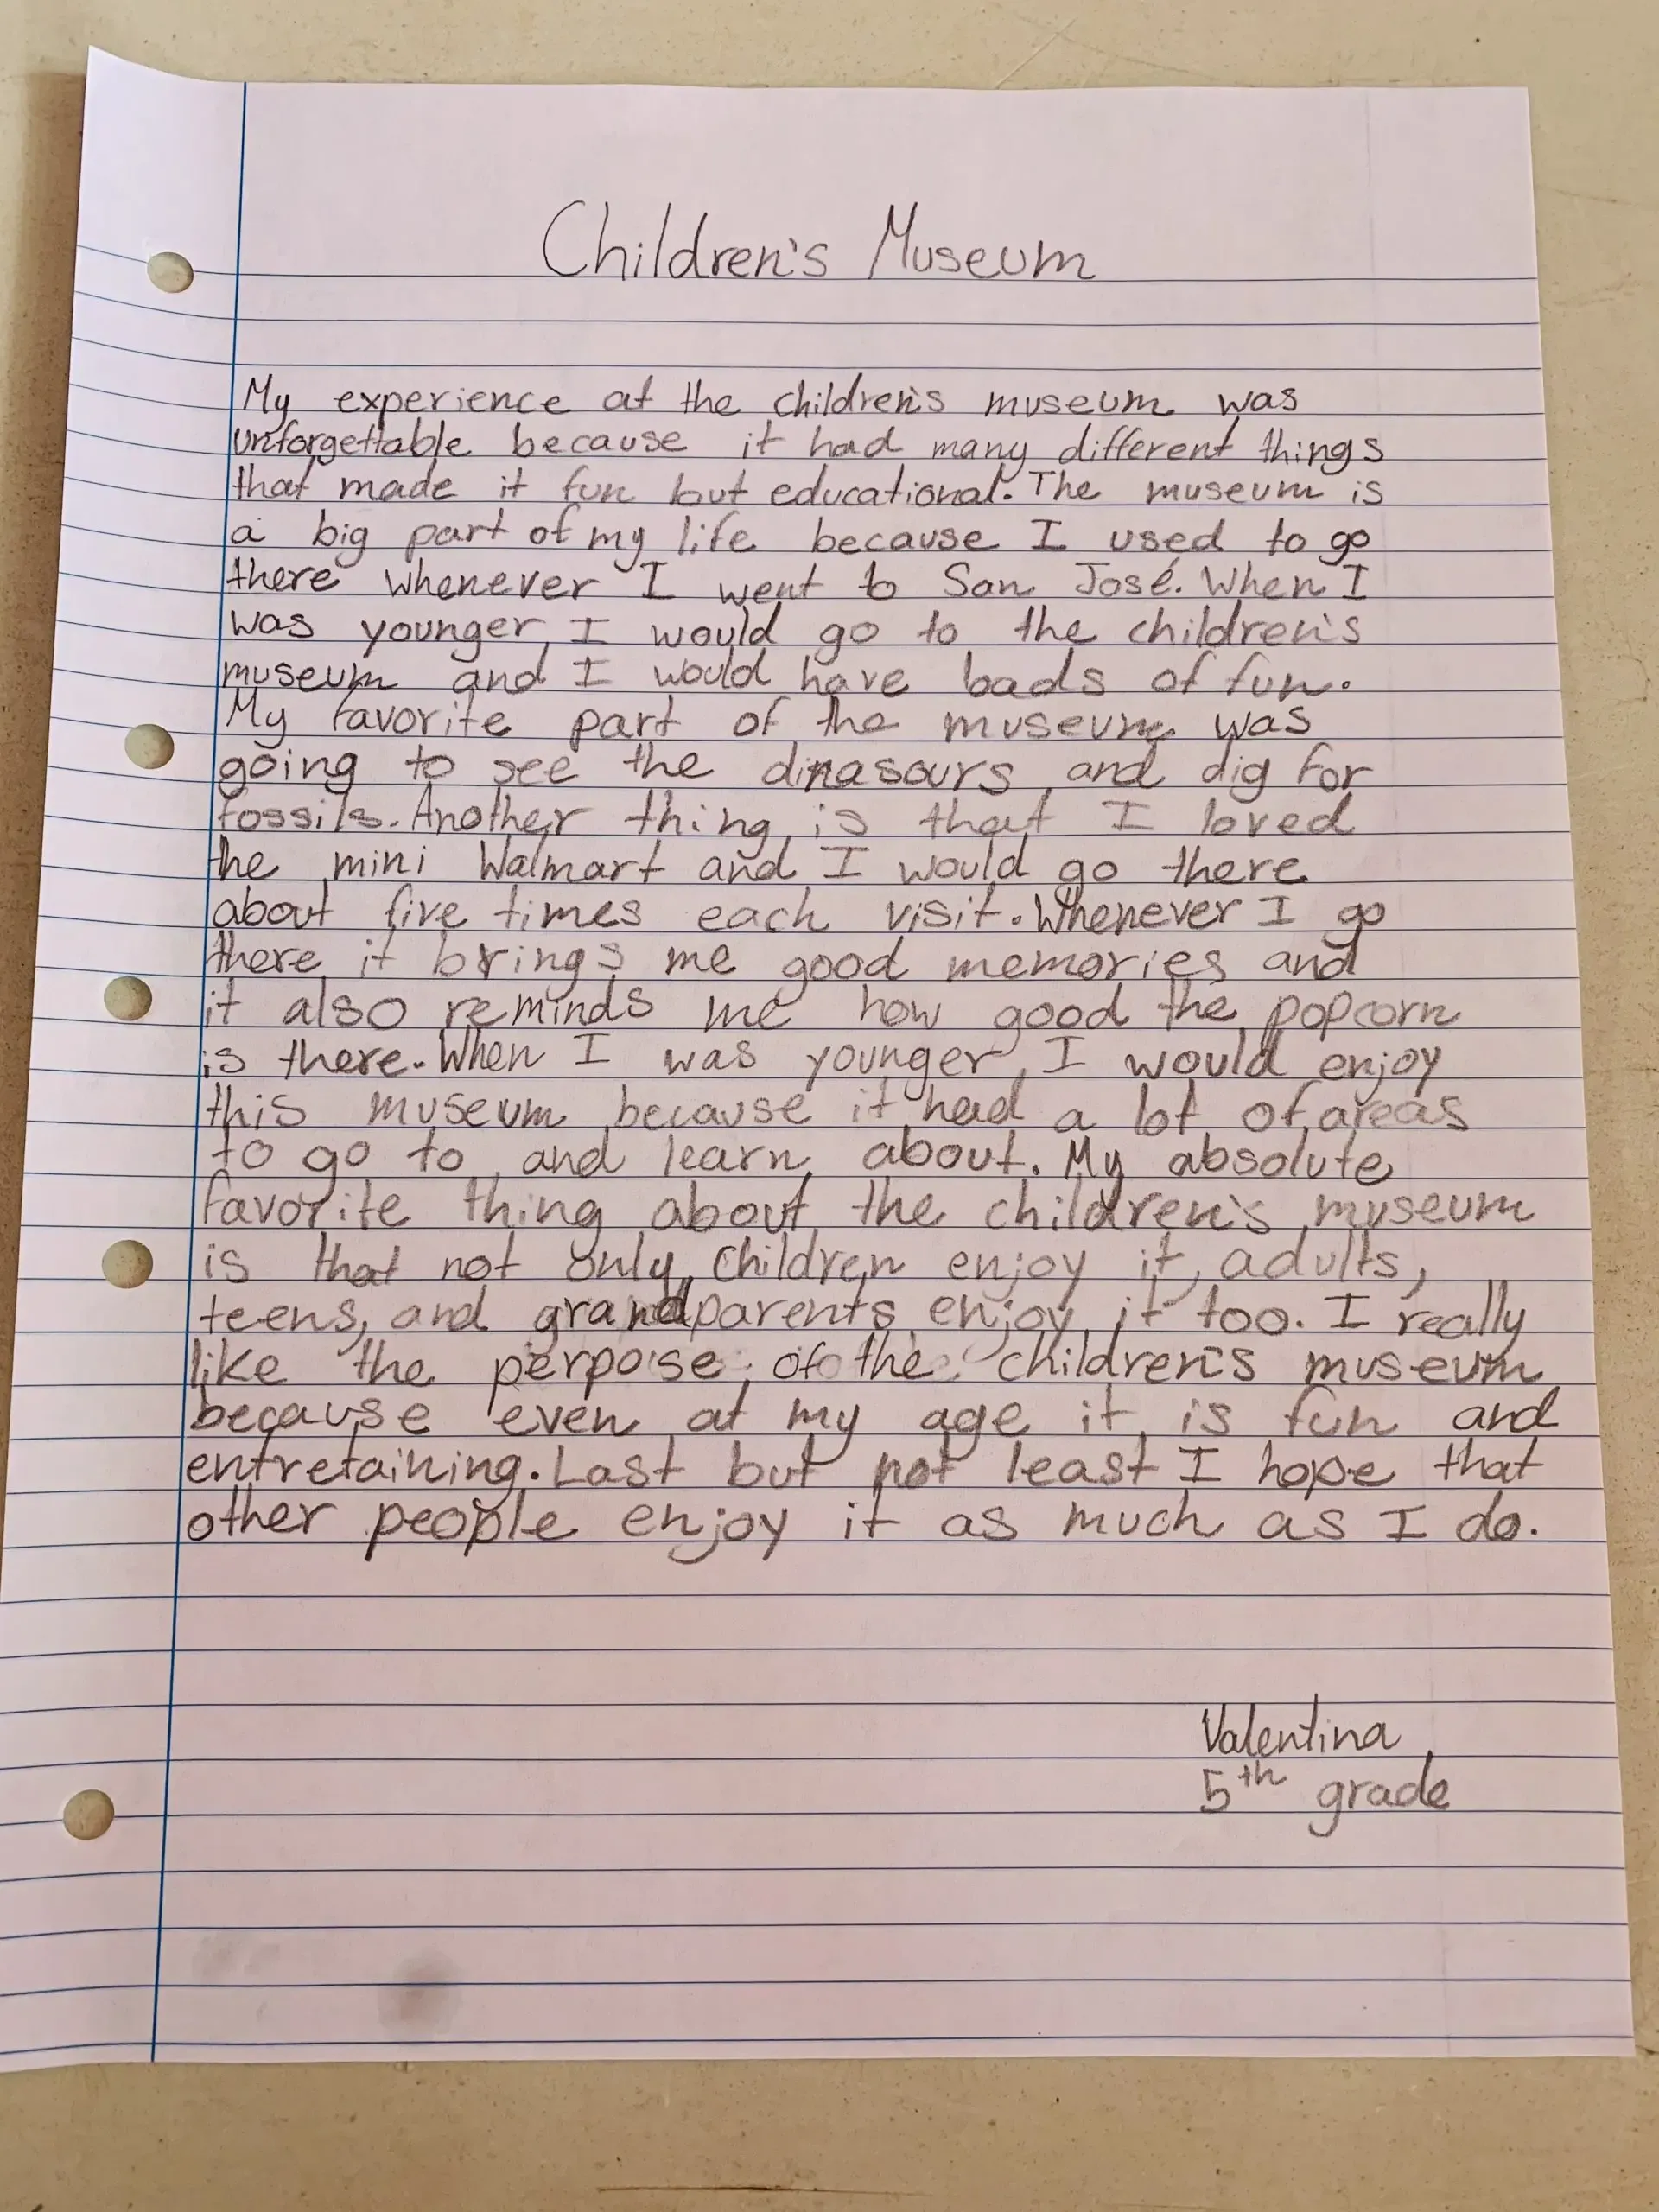 Children's Museum
My experience at the children's museum was
unforgettable because it had many different things
that made it fun but educational. The museum is
a big part of my life because I used to go
there whenever I went to San José. When I
was younger, I would go to the children's
museum and I would have loads of fun.
My favorite part of the museum was
going to see the dinasours and dig for
fossils. Another thing is that I loved
the mini Walmart and I would go there
about five times each visit. Whenever I go
there it brings me good memories and
it also reminds me how good the popcorn
is there. When I was younger, I would enjoy
this museum because it had a lot of areas
to go to and learn about. My absolute
favorite thing about the children's museum
is that not only children enjoy it, adults,
teens, and grandparents enjoy it too. I really
like the perpoise of the children's museum
because even at my age it is fun and
entretaining. Last but not least I hope that
other people enjoy it as much as I do.
Valentina
5th grade